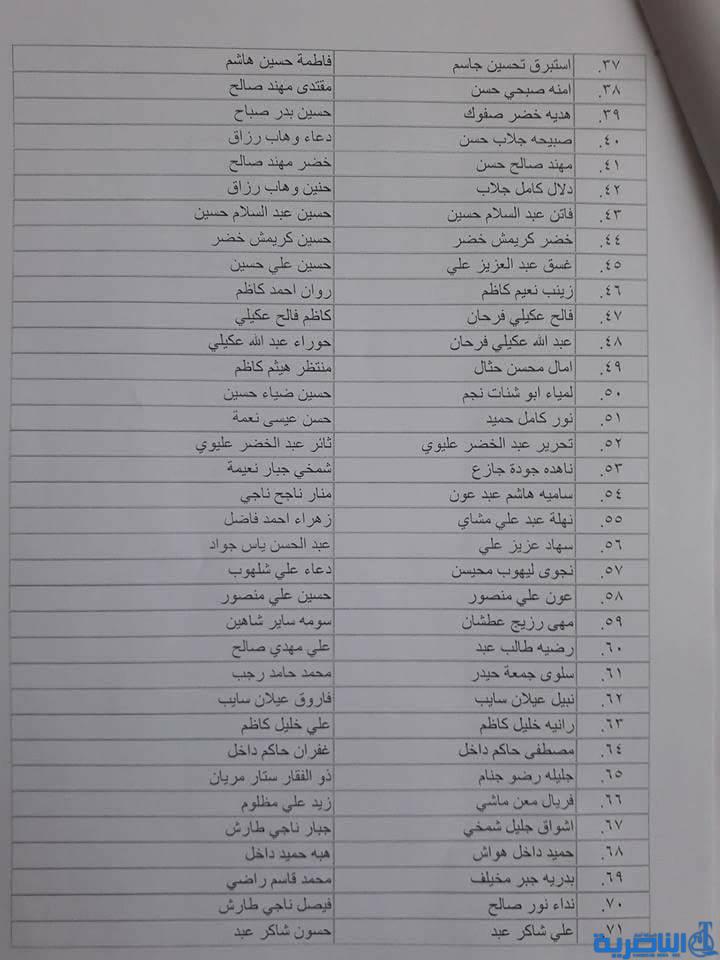 ٣٧. استبرق تحسين جاسم فاطمة حسين هاشم
٣٨. امنه صبحي حسن مقتدى مهند صالح
٣٩. هديه خضر صفوك حسين بدر صباح
٤٠. صبيحه جلاب حسن دعاء وهاب رزاق
٤١. مهند صالح حسن خضر مهند صالح
٤٢. دلال كامل جلاب حنين وهاب رزاق
٤٣. فاتن عبد السلام حسين حسين عبد السلام حسين
٤٤. خضر كريمش خضر حسين كريمش خضر
٤٥. غسق عبد العزيز علي حسين علي حسين
٤٦. زينب نعيم كاظم روان احمد كاظم
٤٧. فالح عكيلي فرحان كاظم فالح عكيلي
٤٨. عبد الله عكيلي فرحان حوراء عبد الله عكيلي
٤٩. امال محسن حثال منتظر هيثم كاظم
٥٠. لمياء ابو شنات نجم حسين ضياء حسين
٥١. نور كامل حميد حسن عيسى نعمة
٥٢. تحرير عبد الخضر عليوي ثائر عبد الخضر عليوي
٥٣. ناهده جودة جازع شمخي جبار نعيمة
٥٤. ساميه هاشم عبد عون منار ناجح ناجي
٥٥. نهلة عبد علي مشاي زهراء احمد فاضل
٥٦. سهاد عزيز علي عبد الحسن ياس جواد
٥٧. نجوى ليهوب محيسن دعاء علي شلهوب
٥٨. عون علي منصور حسين علي منصور
٥٩. مهى رزيج عطشان سومه ساير شاهين
٦٠. رضيه طالب عبد علي مهدي صالح
٦١. سلوى جمعة حيدر محمد حامد رجب
٦٢. نبيل عيلان سايب فاروق عيلان سايب
٦٣. رانيه خليل كاظم علي خليل كاظم
٦٤. مصطفى حاكم داخل غفران حاكم داخل
٦٥. جليله رضو جنام ذو الفقار ستار مريان
٦٦. فريال معن ماشي زيد علي مظلوم
٦٧. اشواق جليل شمخي جبار ناجي طارش
٦٨. حميد داخل هواش هبه حميد داخل
٦٩. بدريه جبر مخيلف محمد قاسم راضي
٧٠. نداء نور صالح فيصل ناجي طارش
٧١. علي شاكر عبد حسون شاكر عبد
الناصرية